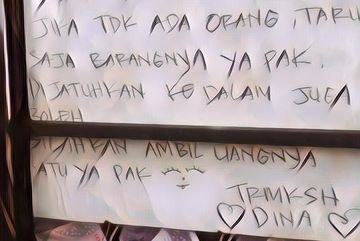 JIKA TDK ADA ORANG, TARU
SAJA BARANGNYA YA PAK.
DIJATUHKAN KE DALAM JUGA
BOLEH
SILAHKAN AMBIL UANGNYA
ATU YA PAK
TRIMKSH
DINA